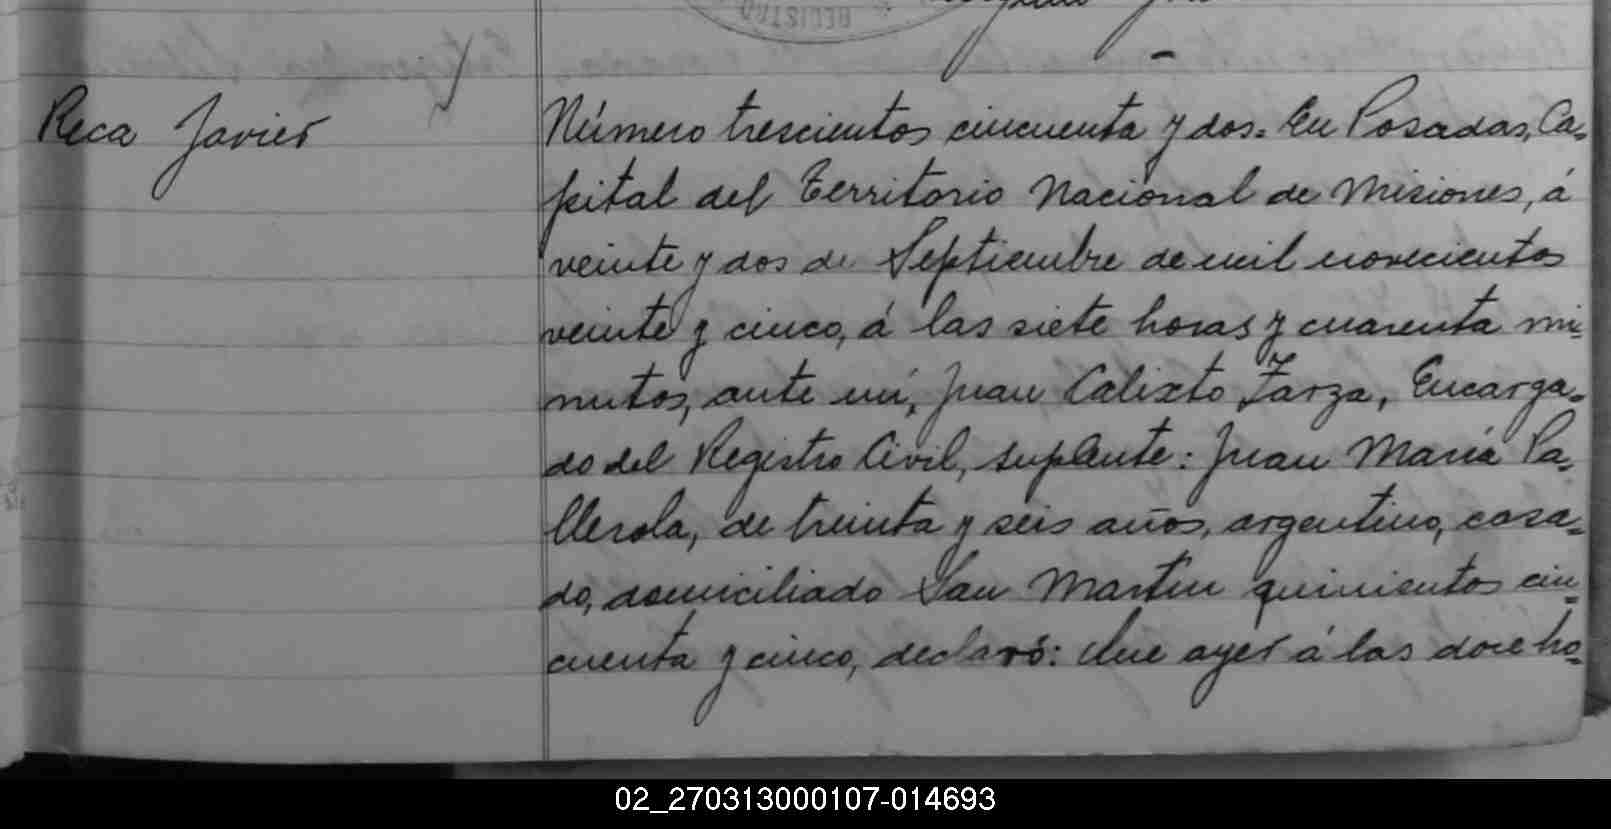 REGISTRO
Reca Javier
Número trescientos cincuenta y dos. En Posadas, Ca-
pital del Territorio Nacional de Misiones, á
veinte y dos de Septiembre de mil novecientos
veinte y cinco, á las siete horas y cuarenta mi-
nutos, ante mí, Juan Calixto Zarza, Encarga-
do del Registro Civil, suplente: Juan María Pa-
llerola, de treinta y seis años, argentino, casa-
do, domiciliado San Martin quinientos cin-
cuenta y cinco, declaró: Que ayer á las doce ho-
02_270313000107-014693